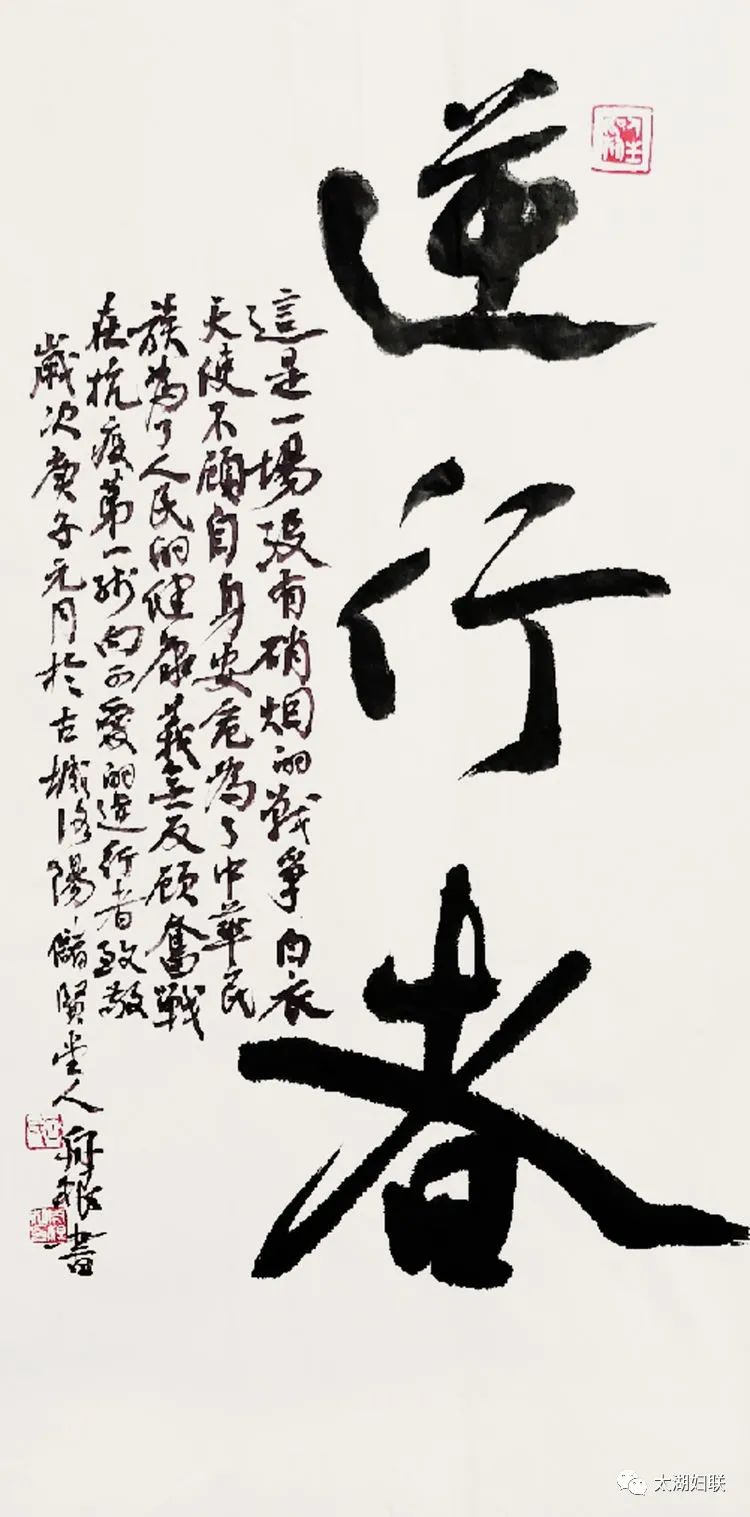 逆行者
這是一場没有硝烟的戰爭白衣
天使不顧自身安危為了中華民
族為了人民的健康義無反顧奮戰
在抗疫第一线向可愛的逆行者致敬
歲次庚子元月於古城洛陽儲賢堂人
舟根書
太湖妇联